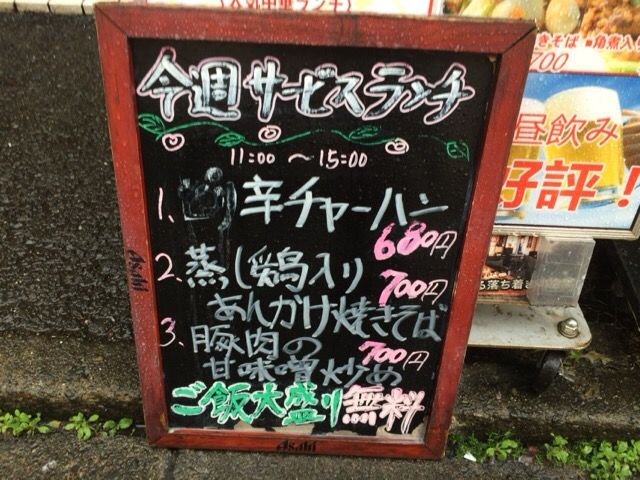 人気中華ランチ
今週サービスランチ
11:00 〜 15:00
1. 辛チャーハン
680円
2. 蒸し鶏入り
700円
あんかけ焼きそば
3. 豚肉の
700円
甘味噌炒め
ご飯大盛り無料
Asahi
Asahi
きそば ■角煮入り
700
昼飲み
好評！
ち落ち着